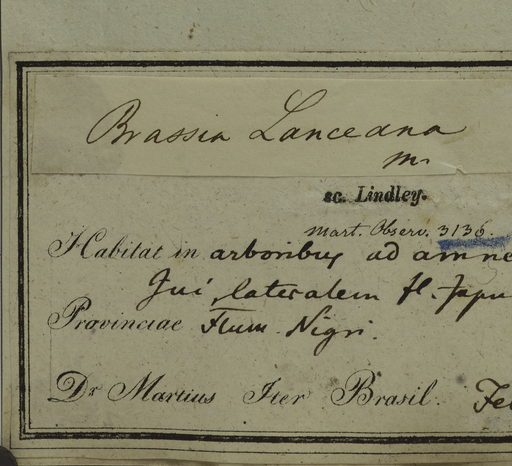 Brassia Lanceana
m.
sc. Lindley.
Mart. Observ. 3136.
Habitat in arboribus ad amne
Jui, lateralem fl. Japu
Provinciae Flum. Nigri.
Dr Martius Iter Brasil. Fe